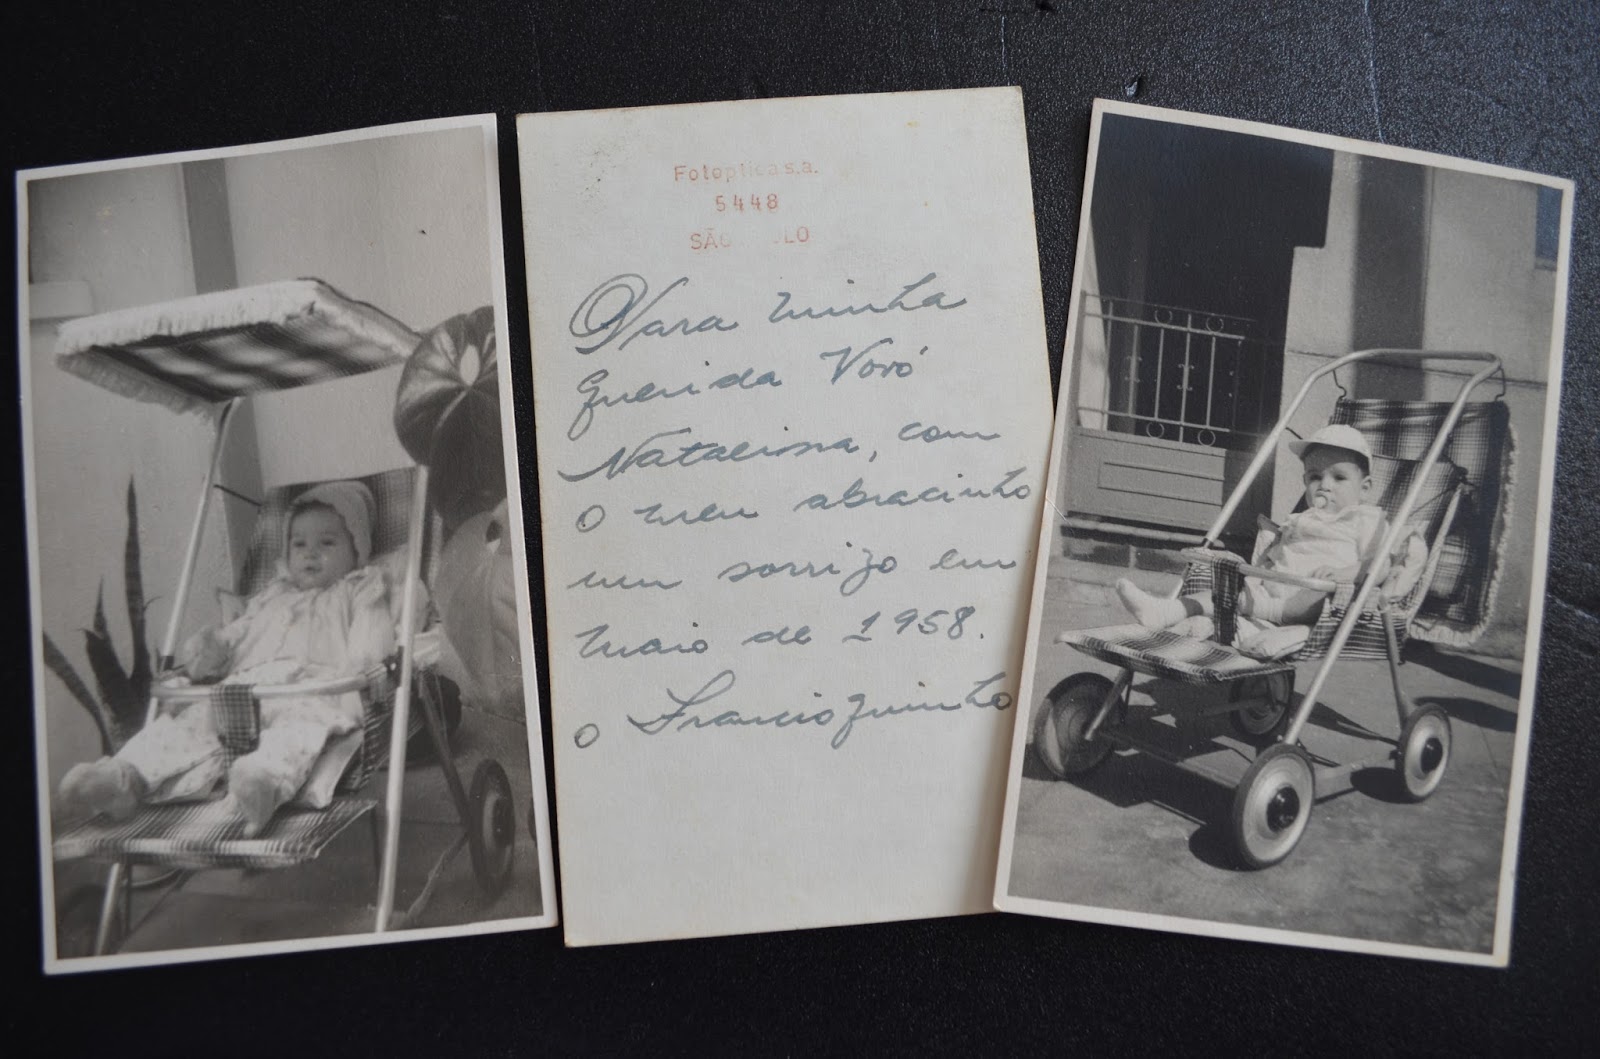 Fotoptica s.a.
5448
SÃO PAULO
Para minha
Querida Vovó
Natalina, com
o meu abracinho
um sorrizo em
maio de 1958.
o Francisquinho